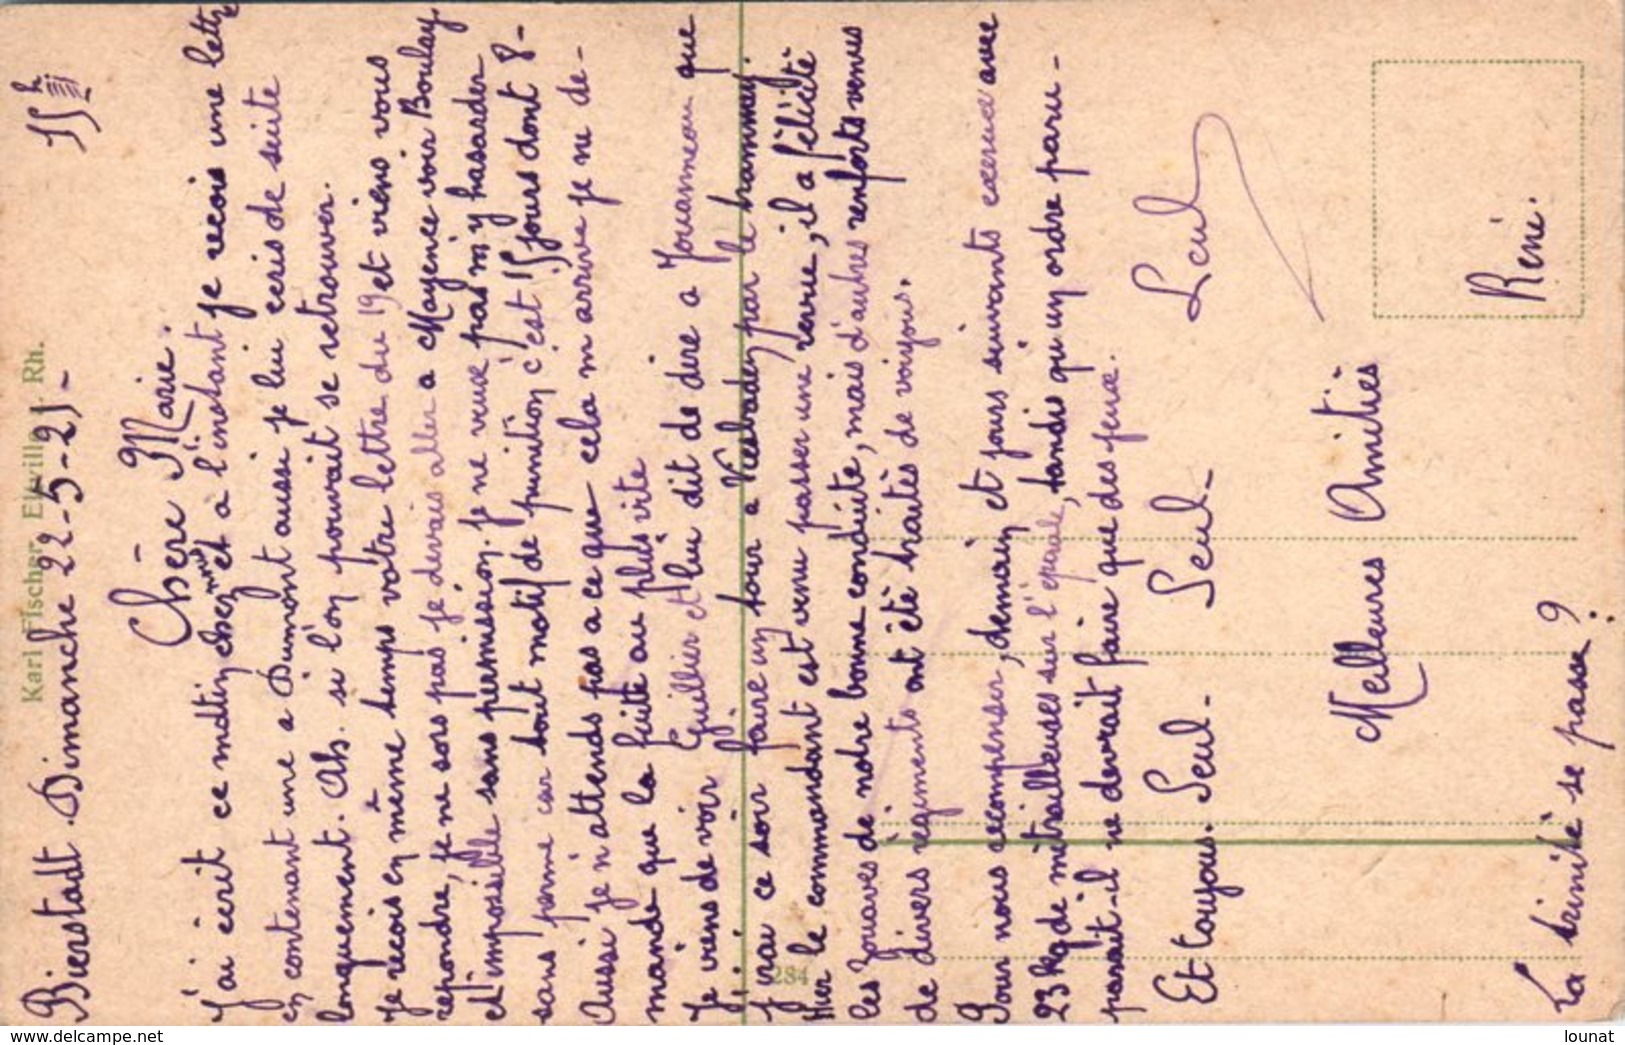 Karl Fischer, Eltville Rh.
Bierstadt Dimanche 22-5-21- 15h
Chère Marie.
J'ai écrit ce matin chez nous et à l'instant je recois une lettre
en contenant une a Dumont aussi je lui ecris de suite
longuement. Ah. si l'on pouvait se retrouver.
Je recois en même temps votre lettre du 19 et viens vous
repondre, je ne sors pas je devais aller a Mayence voir Boulay
et d'imposible sans permission. Je ne veux pas m'y hasarder
sans perme car tout motif de punition c'est 15 jours dont 8-
Aussi je n'attends pas a ce que cela m'arrive je ne de-
mande que la fuite au plus vite
Je viens de voir Guillier et lui dit de dire a Jouanneau que
j'irai ce soir faire un tour a Viesbaden par le trammey.
Hier le commandant est venu passer une revue, il a félicité
les Zouaves de notre bonne conduite, mais d'autres renforts venus
de divers regiments ont été traités de voyous.
Pour nous recompenser, demain et jours suivants exercice avec
23 kg de mitrailleuses sur l'épaule, tandis qu'un ordre paru-
parait-il ne devrait faire que des jeux.
Et toujous. Seul. Seul. Seul- Seul
Meilleures Amitiés
René.
La trinité se passe ?
284
lounat